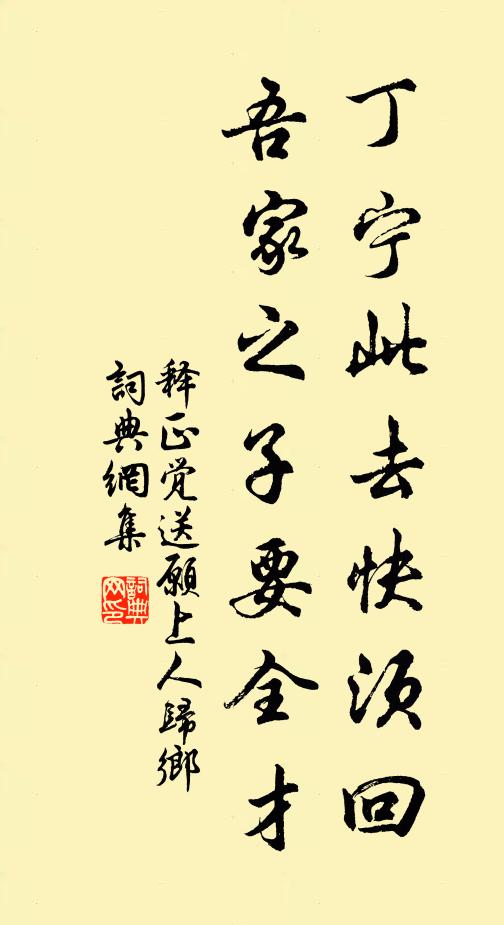 丁宁此去快须回
吾家之子要全才
释正觉送愿上人歸鄉
詞典網集
詞典网印